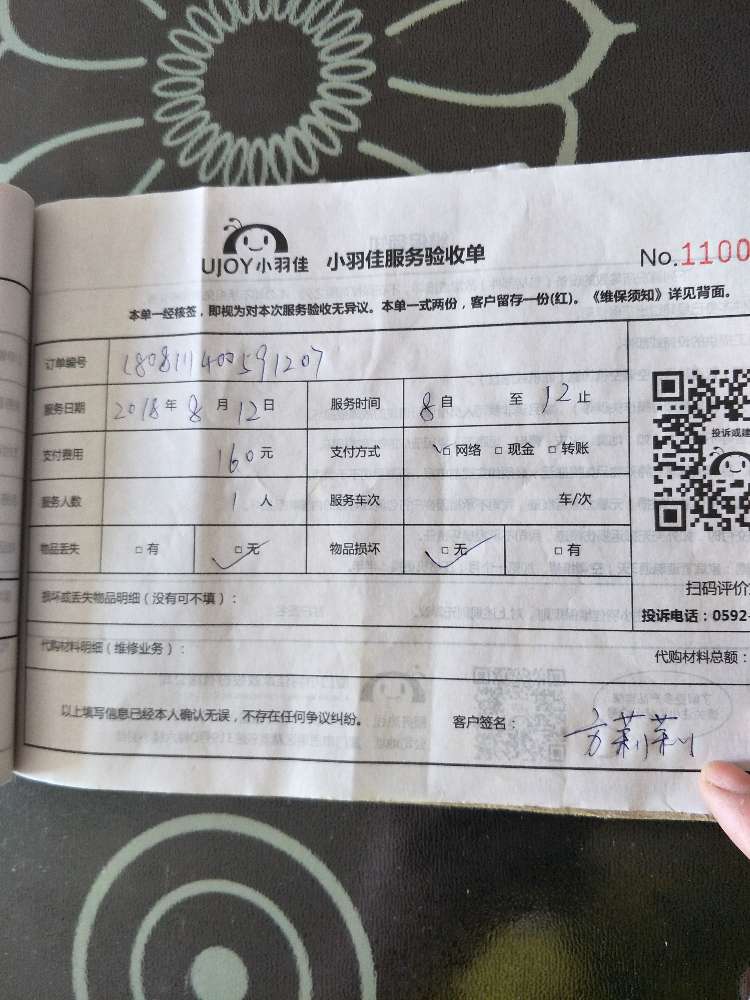 UJOY小羽佳 小羽佳服务验收单 No.1100
本单一经核签，即视为对本次服务验收无异议。本单一式两份，客户留存一份(红)。《维保须知》详见背面。
订单编号 180811140059 1207
服务日期 2018年8月12日 服务时间 8自 至12止
支付费用 160元 支付方式 □网络 □现金 □转账
服务人数 1人 服务车次 车/次
物品丢失 □有 □无 物品损坏 □无 □有
投诉或建
扫码评价
损坏或丢失物品明细（没有可不填）：
投诉电话：0592-
代购材料明细（维修业务）：
代购材料总额：
以上填写信息已经本人确认无误，不存在任何争议纠纷。 客户签名： 方莉莉